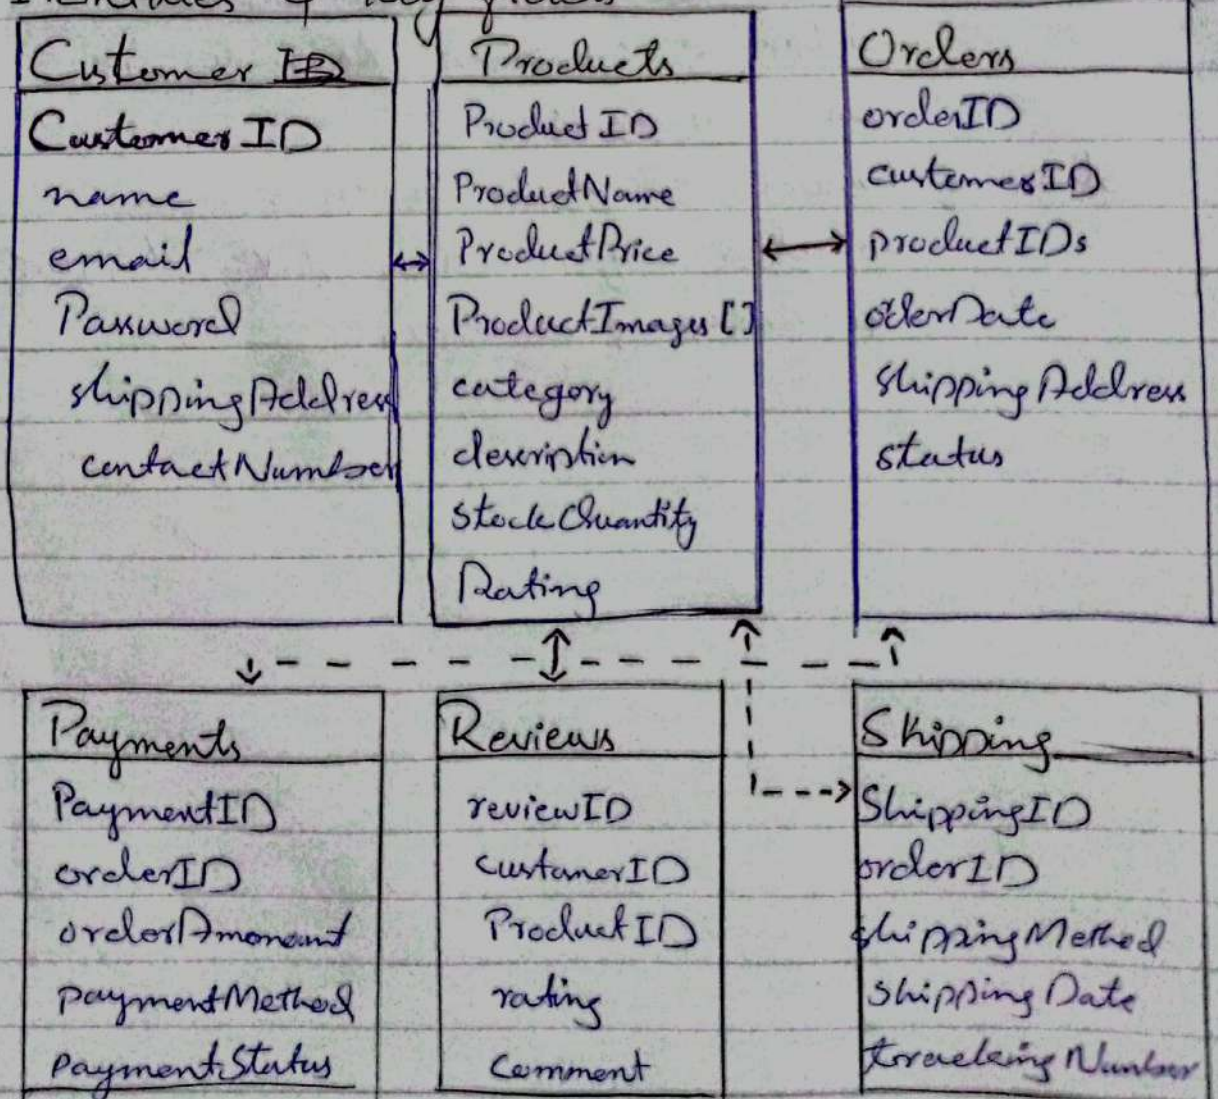 Entities & key fields
Customer
CustomerID
name
email
Password
shippingAddress
contactNumber
Products
ProductID
ProductName
ProductPrice
ProductImages []
category
description
stockQuantity
Rating
Orders
orderID
customerID
productIDs
oderDate
shippingAddress
status
Payments
PaymentID
orderID
orderAmonount
paymentMethod
paymentStatus
Reviews
reviewID
customerID
ProductID
rating
Comment
Shipping
ShippingID
orderID
shippingMethod
shippingDate
trackingNumber